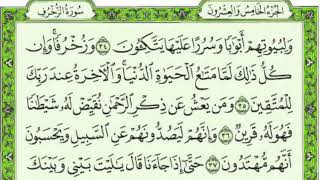 الجزء الخامس والعشرون سورة الزخرف
وَلِبُيُوتِهِمْ أَبْوَٰبًا وَسُرُرًا عَلَيْهَا يَتَّكِـُٔونَ ٣٤ وَزُخْرُفًا وَإِن
كُلُّ ذَٰلِكَ لَمَّا مَتَٰعُ ٱلْحَيَوٰةِ ٱلدُّنْيَا وَٱلْءَاخِرَةُ عِندَ رَبِّكَ
لِلْمُتَّقِينَ ٣٥ وَمَن يَعْشُ عَن ذِكْرِ ٱلرَّحْمَٰنِ نُقَيِّضْ لَهُۥ شَيْطَٰنًا
فَهُوَ لَهُۥ قَرِينٌ ٣٦ وَإِنَّهُمْ لَيَصُدُّونَهُمْ عَنِ ٱلسَّبِيلِ وَيَحْسَبُونَ
أَنَّهُم مُّهْتَدُونَ ٣٧ حَتَّىٰٓ إِذَا جَآءَنَا قَالَ يَٰلَيْتَ بَيْنِى وَبَيْنَكَ